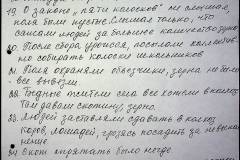 19 О законе „пяти колосков" не слышал,
поля были пустые. Слышал только, что
сажали людей за большое количество зерна
20. После сбора урожая, посылали колхозы
но собирать колоски школьников
21. Поля охраняли объездчики, зерна не было
все вывезли.
22. Бедные жители села все хотели в колхоз
Там давали скотину, зерно.
23. Людей заставляли сдавать в колхоз
коров, лошадей, грозясь посадить за невыпол
нение.
24. Скот прятать было негде.